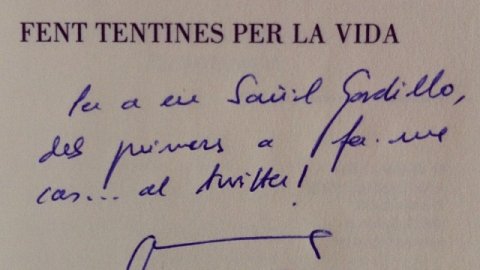 FENT TENTINES PER LA VIDA
Per a en Saül Gordillo,
dels primers a fer-me
cas... al twitter!